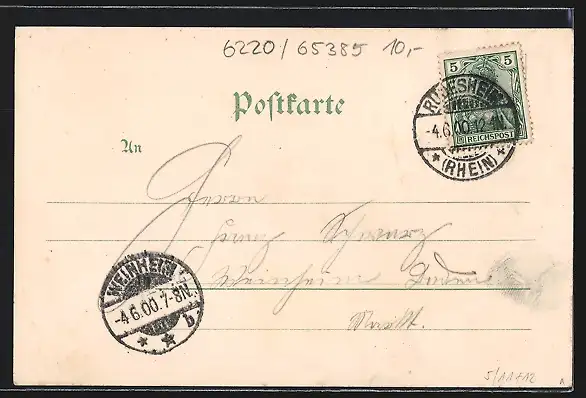 6220/65385 10,-
5 5
REICHSPOST
RÜDESHEIM
-4.6.00.12-1N.
(RHEIN)
Postkarte
An
Herrn
Schwarz
Weinheim Baden
Markt.
WEINHEIM
-4.6.00.7-8N.
b.
5/11+12